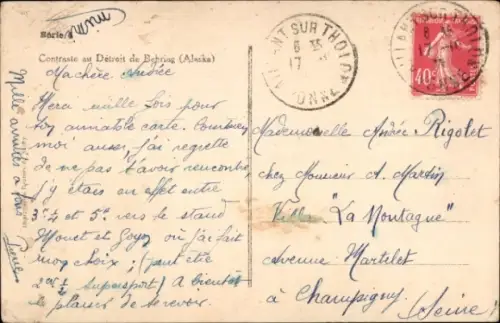 Série/4
Contraste au Détroit de Behring (Alaska)
Ma chère Andrée
Merci mille fois pour
ton aimable carte. Courtenay
moi aussi, j'ai regretté
de ne pas t'avoir rencontrée
j'y étais en effet entre
3h ½ et 5h vers le stand
Monet et Goyon où j'ai fait
mon choix; (peut être
2cv ½ supersport) A bientôt
le plaisir de te revoir.
Mille amitiés à tous
NT SUR THOLON
6 35
17
YONNE
SUR THOLON
6
17
YONNE
40c
Mademoiselle Andrée Rigolet
chez Monsieur A. Martin
Villa "La Montagne"
Avenue Martelet
à Champigny
(Seine)